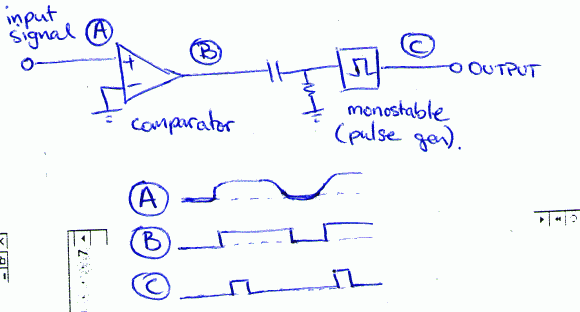 input
signal
A
+
-
B
C
OUTPUT
comparator
monostable
(pulse gen).
A
B
C